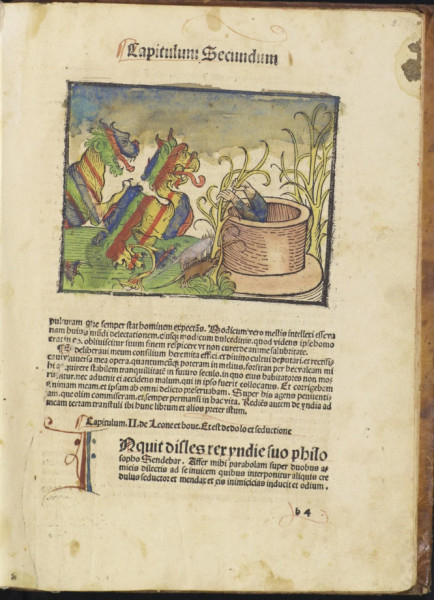 Capitulum Secundum
pulturam que semper stat hominem expectãs. Modicum vero mellis intellexi esse va
nam huius mũdi delectationem, eiusq; modicum dulcedinis. quod videns ipse homo
obliuiscitur suum finem respicere vt non curet de anime salubritate.
deliberaui meum consilium heremita effici, et diuino cultui deputari, et rectifi
vniuersa mea opera, quantumcũq; poteram in melius, forsitan per hec valeam mi
hi acquirere stabilem tranquillitatẽ in futuro seculo. in quo eius habitatores non mo
riũtur, nec aduenit ei accidens malum, qui in ipso fuerit collocatus. Et corrigebam
animam meam et ipsam ab omni delicto preseruabam. Super his agens peniten
am, que olim commiseram, et semper permansi in hac vita. Rediẽs autem de yndia ad
meam terram transtuli ibi hunc librum et alios preter istum.
Capitulum. II. de Leone et boue. Et est de dolo et seductione
Inquit disles rex yndie suo philo
sopho Sendebar. Affer mihi parabolam super duobus a
micis dilectis ad se inuicem quibus interponitur aliquis cre
dulus seductor et mendax et eis inimicicias inducit et odium.
b4